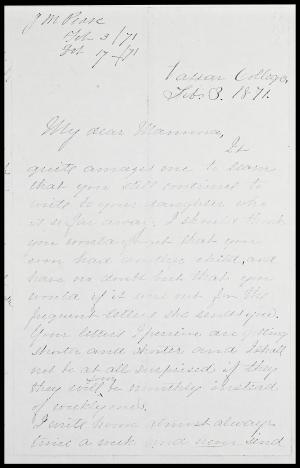 J M Pease
Feb 3 /71
Feb 17 - /71
Vassar College,
Feb. 3. 1871.
My dear Mamma,
It
quite amazes me to learn
that you still continue to
write to your daughter who
is so far away. I should think
you would forget that you
ever had another child, and
have no doubt but that you
would if it were not for the
frequent letters she sends you.
Your letters I perceive are getting
shorter and shorter and I shall
not be at all surprised if they
they will be monthly instead
of weekly ones.
I write home almost always
twice a week and now send